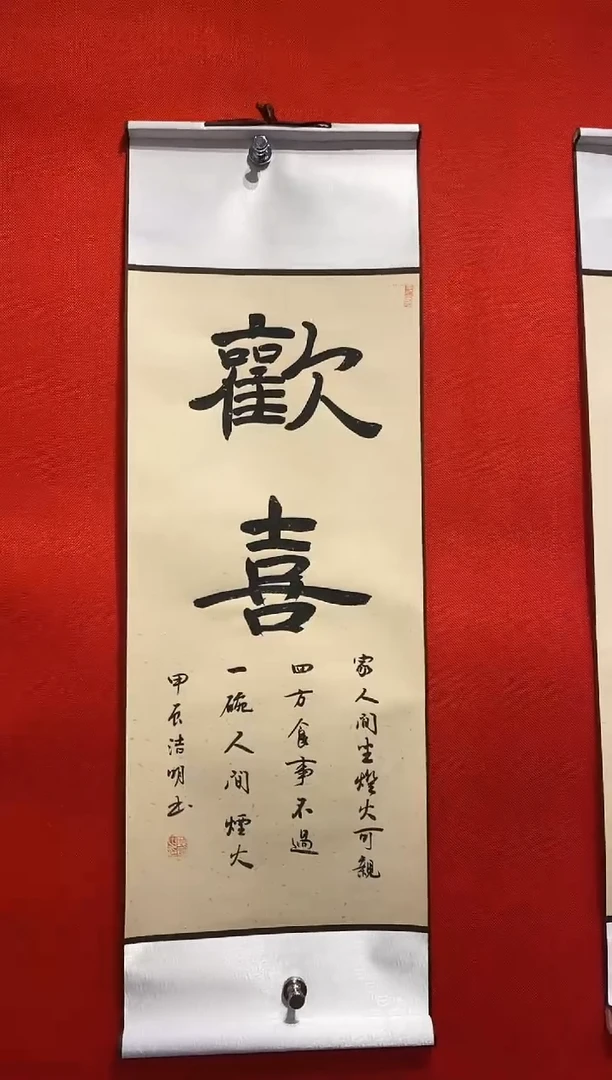 歡喜
家人間坐燈火可親
四方食事不過
一碗人間煙火
甲辰洁明书